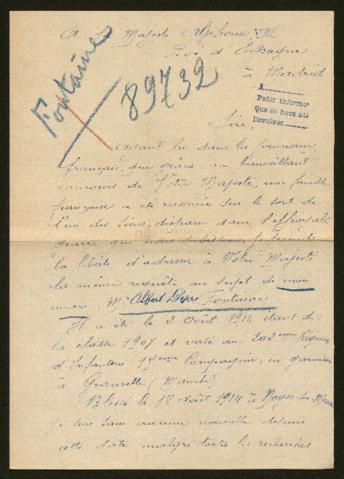 A Sa Majesté Alphonse XIII
Roi d'Espagne
à Madrid
Fontaine
89732
A
Pedir informes
que se hace
Devolver
Sire,
Ayant lu dans les journaux
français, que grâce au bienveillant
concours de Votre Majesté, une famille
française a été rassurée sur le sort de
l'un des siens, disparu dans l'effroyable
guerre que nous subissons, je prends
la liberté d'adresser à Votre Majesté
la même requête au sujet de mon
mari Mr Albert Fontaine
Il a été le 2 août 1914 étant de
la classe 1907 et versé au 202ème Régiment
d'Infanterie Compagnie, en garnison
à Granville (Manche)
Blessé le 1914 à
je suis sans aucune nouvelle depuis
cette date malgré toutes les recherches